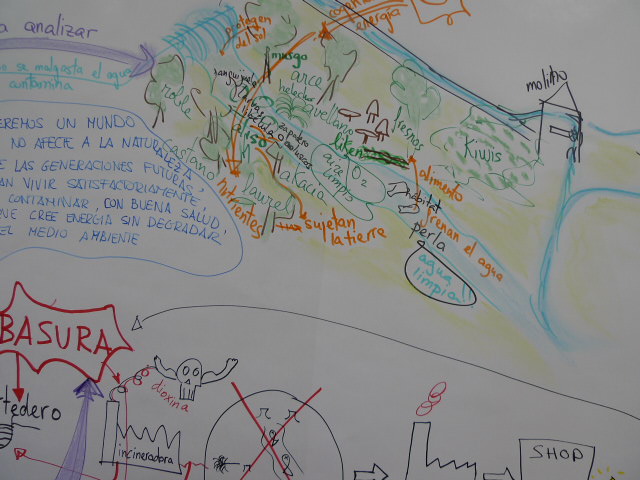 a analizar
se malgasta el agua
contamina
EREMOS UN MUNDO
NO AFECTE A LA NATURALEZA
E LAS GENERACIONES FUTURAS,
AN VIVIR SATISFACTORIAMENTE,
CONTAMINAR, CON BUENA SALUD,
NE CREE ENERGÍA SIN DEGRADAR
EL MEDIO AMBIENTE
protegen
del sol
energía
musgo
arce
helechos
avellano
roble
fresnos
Kiwis
molino
castaño
aliso
liken
laurel
akacia
aire
limpio
O2
alimento
habitat
nutrientes
sujetan
la tierra
frenan el agua
perla
agua
limpia!!
BASURA
tedero
dioxina
incineradora
SHOP